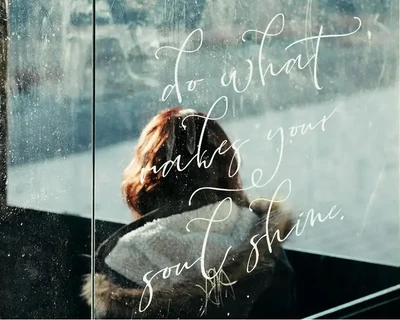 do what
makes your
soul shine.